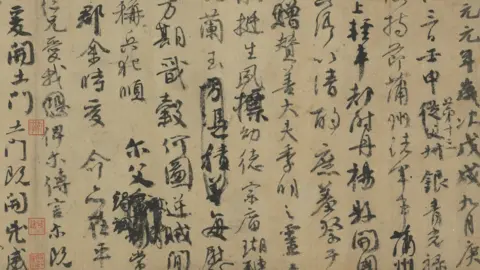 元元年歲次戊戌九月庚
三日壬申從父脚第十三銀青光祿
持節蒲州諸軍事蒲州
上輕車都尉丹楊縣開國
卿以清酌庶羞祭于
贈贊善大夫季明之靈
挺生夙標幼德宗廟瑚璉
蘭玉方憑積善每慰
方期戩穀何圖逆賊間
稱兵犯順
爾父竭誠常
郡余時受命亦在平
仁兄愛我恐俾爾傳言爾既
爰開土門土門既開凶威